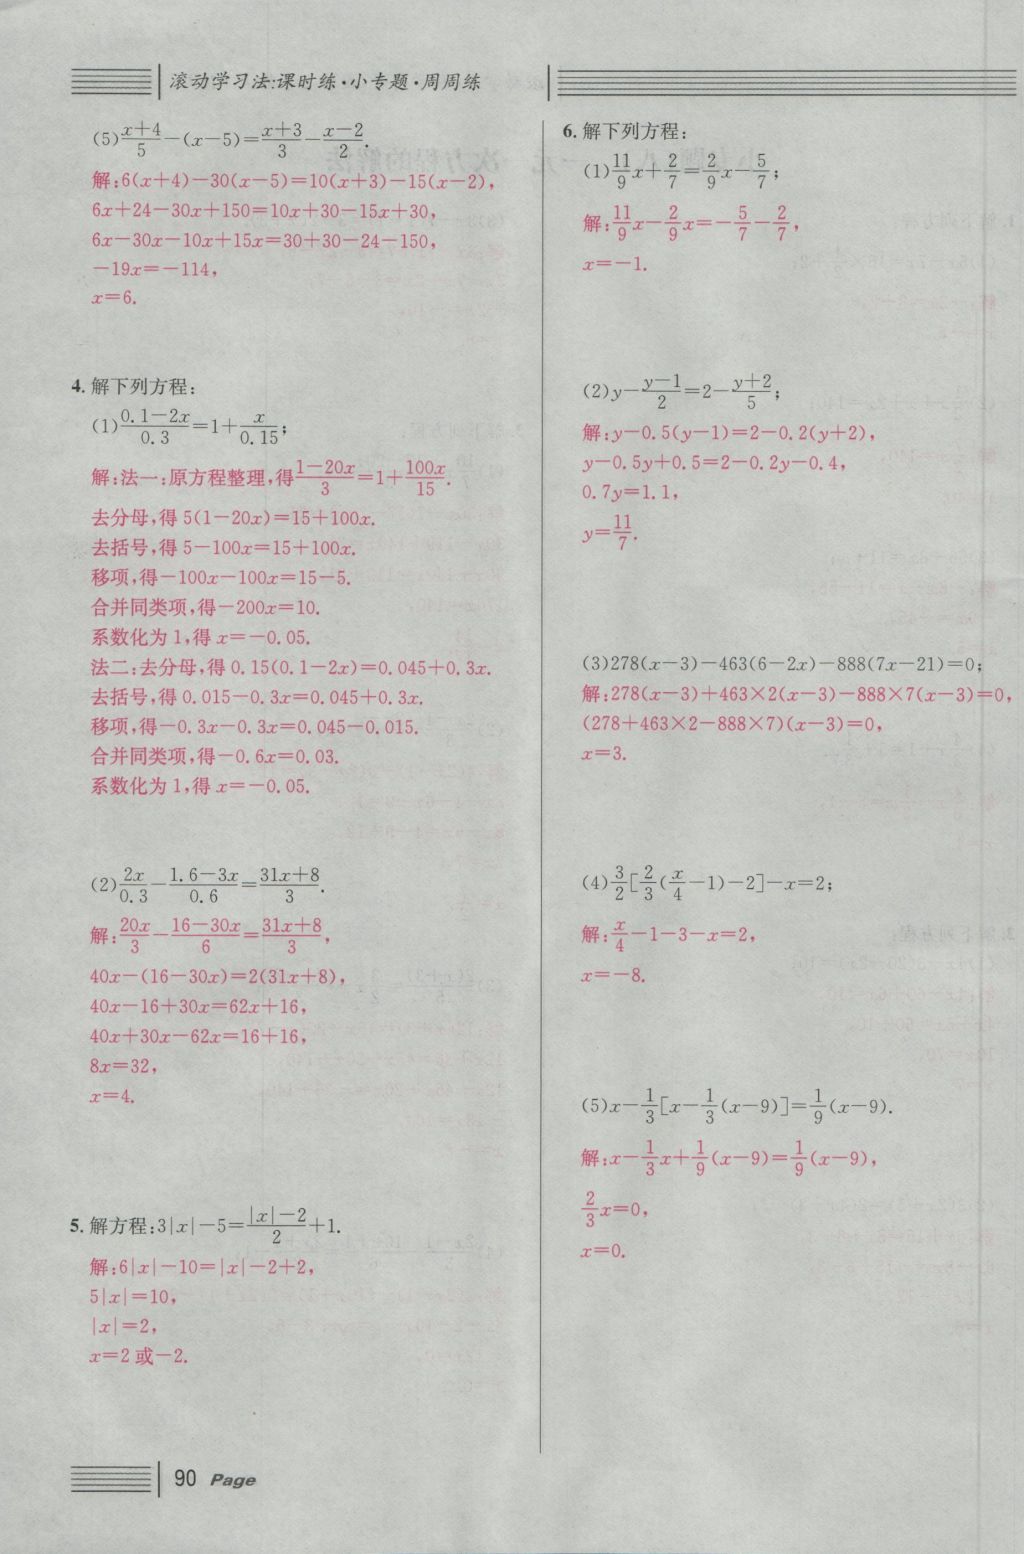 滚动学习法:课时练·小专题·周周练
(5)\frac{x+4}{5}-(x-5)=\frac{x+3}{3}-\frac{x-2}{2}.
解:6(x+4)-30(x-5)=10(x+3)-15(x-2),
6x+24-30x+150=10x+30-15x+30,
6x-30x-10x+15x=30+30-24-150,
-19x=-114,
x=6.
4. 解下列方程:
(1)\frac{0.1-2x}{0.3}=1+\frac{x}{0.15};
解:法一:原方程整理,得\frac{1-20x}{3}=1+\frac{100x}{15}.
去分母,得 5(1-20x)=15+100x.
去括号,得 5-100x=15+100x.
移项,得-100x-100x=15-5.
合并同类项,得-200x=10.
系数化为 1,得 x=-0.05.
法二:去分母,得 0.15(0.1-2x)=0.045+0.3x.
去括号,得 0.015-0.3x=0.045+0.3x.
移项,得-0.3x-0.3x=0.045-0.015.
合并同类项,得-0.6x=0.03.
系数化为 1,得 x=-0.05.
(2)\frac{2x}{0.3}-\frac{1.6-3x}{0.6}=\frac{31x+8}{3}.
解:\frac{20x}{3}-\frac{16-30x}{6}=\frac{31x+8}{3},
40x-(16-30x)=2(31x+8),
40x-16+30x=62x+16,
40x+30x-62x=16+16,
8x=32,
x=4.
5. 解方程:3|x|-5=\frac{|x|-2}{2}+1.
解:6|x|-10=|x|-2+2,
5|x|=10,
|x|=2,
x=2 或-2.
6. 解下列方程:
(1)\frac{11}{9}x+\frac{2}{7}=\frac{2}{9}x-\frac{5}{7};
解:\frac{11}{9}x-\frac{2}{9}x=-\frac{5}{7}-\frac{2}{7},
x=-1.
(2)y-\frac{y-1}{2}=2-\frac{y+2}{5};
解:y-0.5(y-1)=2-0.2(y+2),
y-0.5y+0.5=2-0.2y-0.4,
0.7y=1.1,
y=\frac{11}{7}.
(3)278(x-3)-463(6-2x)-888(7x-21)=0;
解:278(x-3)+463×2(x-3)-888×7(x-3)=0,
(278+463×2-888×7)(x-3)=0,
x=3.
(4)\frac{3}{2}[\frac{2}{3}(\frac{x}{4}-1)-2]-x=2;
解:\frac{x}{4}-1-3-x=2,
x=-8.
(5)x-\frac{1}{3}[x-\frac{1}{3}(x-9)]=\frac{1}{9}(x-9).
解:x-\frac{1}{3}x+\frac{1}{9}(x-9)=\frac{1}{9}(x-9),
\frac{2}{3}x=0,
x=0.
90 Page